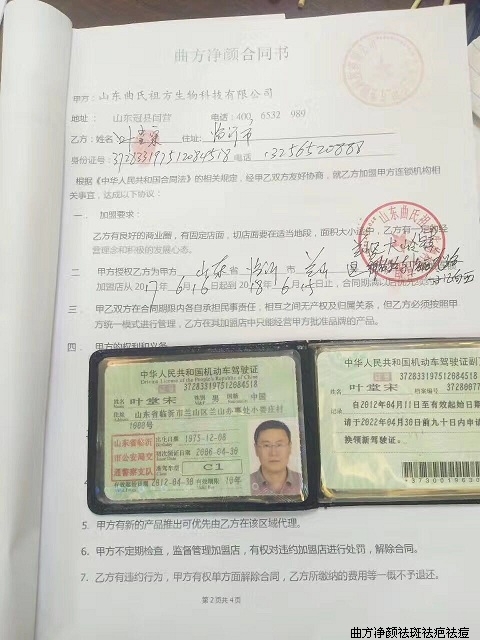 曲方净颜合同书
甲方：山东曲氏祖方生物科技有限公司
地址： 山东冠县闫营 电话：400 6532 989
乙方：姓名 叶堂宋 住址： 临沂市
身份证号：372833197512084518 电话 13256520888
根据《中华人民共和国合同法》的相关规定，经甲乙双方友好协商，就乙方加盟甲方连锁机构相
关事宜，达成以下协议：
一． 加盟要求：
乙方有良好的商业圈，有固定店面，切店面要在适当地段，面积大小适中，乙方有一定的经
营理念和积极的发展心态。
二． 甲方授权乙方为甲方 山东 省 临沂 市 兰山
加盟店从2017年6月16日起到2018年6月15日止，合同期满
山东曲氏祖方
三． 甲乙双方在合同期限内各自承担民事责任，相互之间无产权及归属关系，但乙方必须按照甲
方统一模式进行管理，乙方在其加盟店中只能经营甲方批准品牌的产品。
四． 甲方的权利和义务
中华人民共和国机动车驾驶证
Driving License of the People's Republic of China
证号 372833197512084518
姓名 叶堂宋 性别 男 国籍 中国
住址 山东省临沂市兰山区兰山办事处小娄庄村
1000号
山东省临沂
市公安局交
通警察支队
出生日期 1975-12-08
初次领证日期 2006-04-30
准驾车型 C1
有效起始日期 2012-04-30 有效期限 10年
中华人民共和国机动车驾驶证副页
证号 372833197512084518
姓名 叶堂宋 档案编号 37280077
记录 自2012年04月11日至有效起始日期
请于2022年04月30日前九十日内申请
换领新驾驶证。
5． 甲方有新的产品推出可优先由乙方在该区域代理。
6． 甲方不定期检查，监督管理加盟店，有权对违约加盟店进行处罚，解除合同。
7． 乙方有违约行为，甲方有权单方面解除合同，乙方所缴纳的费用等一慨不予退还。
第 2 页共 4 页
曲方净颜祛斑祛疤祛痘